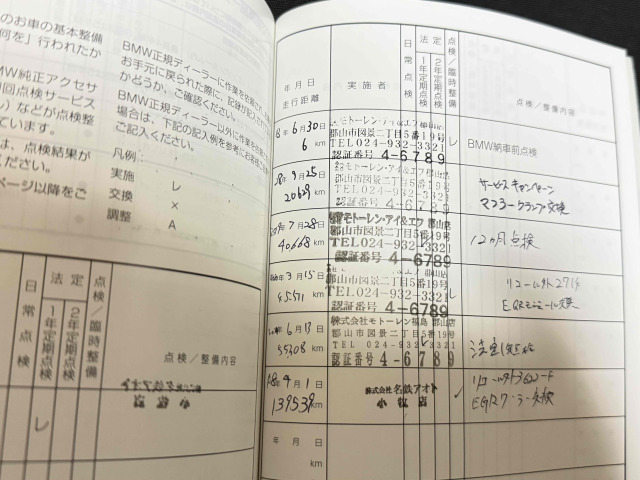 のお車の基本整備
何を」行われたか
MW純正アクセサ
回回点検サービス
い）などが点検整
ています。
は、点検結果が
ください。
ページ以降をご
BMW正規ディーラーに作業を依頼され
お手元に戻られた際に、記録が記入され
かどうか、ご確認ください。
BMW正規ディーラー以外に作業を
場合は、下記の記入例を参考に
ご記入ください。
凡例：
実施 レ
交換 ×
調整 A
日常点検
法定
1年定期点検
2年定期点検
点検／臨時整備
点検／整備内容
レ
年月日
走行距離
実施者
日常点検
法定
1年定期点検
2年定期点検
点検／臨時整備
点検／整備内容
年 6月30日
6 km
モトーレン・アイ&エフ
郡山市図景二丁目5番19号
TEL024-932-3321
認証番号 4-6789
レ
BMW納車前点検
年 9月25日
20629 km
郡山市図景二丁目5番19号
TEL024-932-3321
認証番号 4-6789
サービスキャンペーン
マフラークランプ交換
年 7月28日
40668 km
モトーレン・アイ&エフ 郡山店
郡山市図景二丁目5番19号
TEL024-932-3321
認証番号 4-6789
12ヵ月点検
年 3月15日
45571 km
郡山市図景二丁目5番19号
TEL024-932-3321
認証番号 4-6789
レ
EGRモジュール交換
年 6月17日
55308 km
株式会社モトーレン福島 郡山店
郡山市図景二丁目5番19号
TEL 024-932-3321
認証番号 4-6789
法定1年点検
年 9月1日
139539 km
株式会社 名鉄アオト
小牧店
レ
EGRクーラー交換
年月日
km